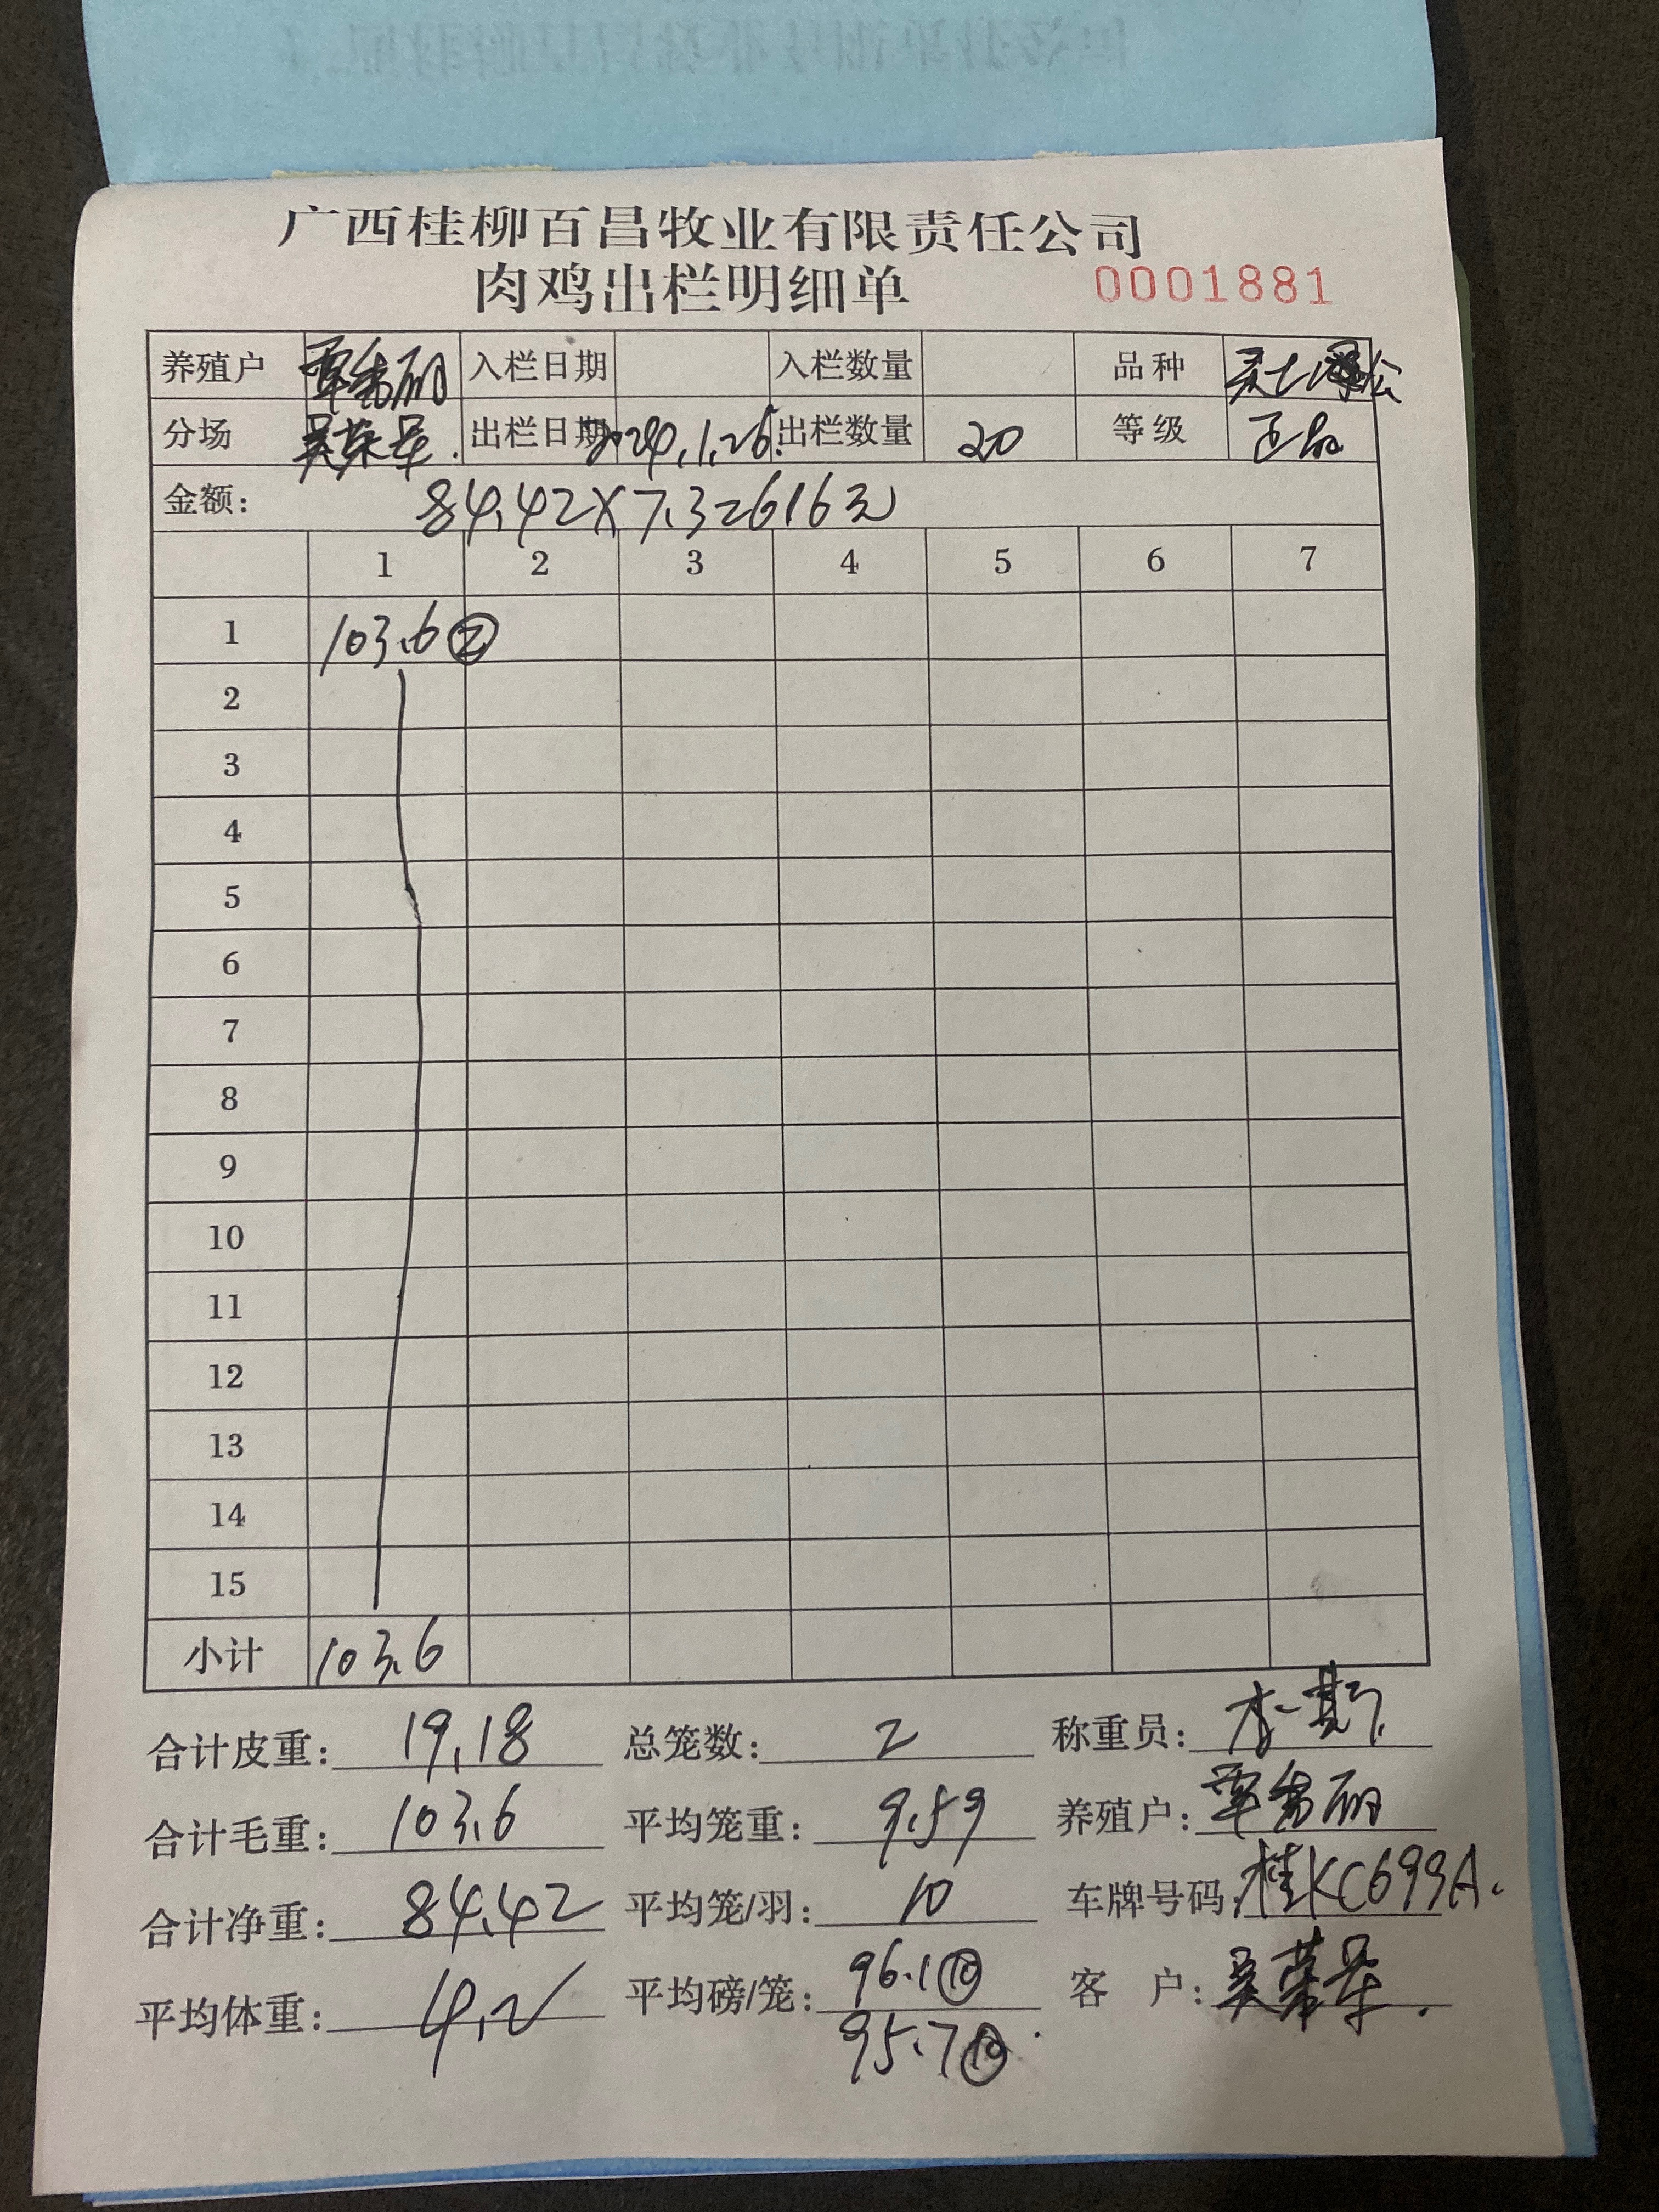 广西桂柳百昌牧业有限责任公司
肉鸡出栏明细单 0001881
养殖户 入栏日期 入栏数量 品种
分场 吴荣华. 出栏日期 2024.1.26. 出栏数量 20 等级 正品
金额: 84.42X7.3=616元
1 2 3 4 5 6 7
1 103.6 ②
2
3
4
5
6
7
8
9
10
11
12
13
14
15
小计 103.6
合计皮重: 19.18 总笼数: 2 称重员:
合计毛重: 103.6 平均笼重: 9.59 养殖户:
合计净重: 84.42 平均笼/羽: 10 车牌号码: 桂KC699A.
平均体重: 4.2 平均磅/笼: 96.1⑩ 客 户: 吴荣华.
95.7⑩.